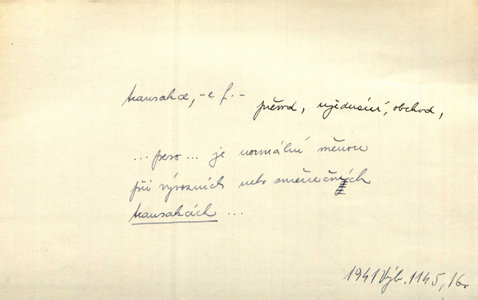 transakce, -e f. -
převod, ujednání, obchod,
... peso ... je normální měnou
při vývozních nebo směnečných
transakcích ...
1941 Výb. 1145, 16.